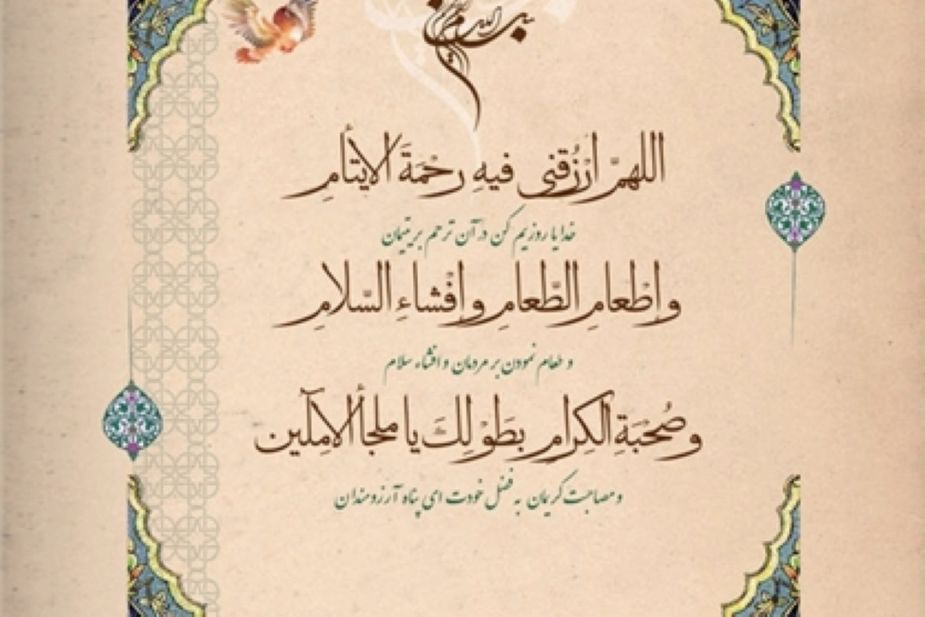 بسم الله الرحمن الرحیم
اللهمّ ارْزُقنی فیهِ رحْمَةَ الایتامِ
خدایا روزیم کن در آن ترحم بر یتیمان
و اِطْعامِ الطَّعامِ و اِفْشاءِ السَّلامِ
و طعام نمودن بر مردمان و افشاء سلام
و صُحْبَةِ الکِرامِ بِطَوْلِکَ یا ملجأ الآمِلین
و مصاحبت کریمان به فضل خودت ای پناه آرزومندان